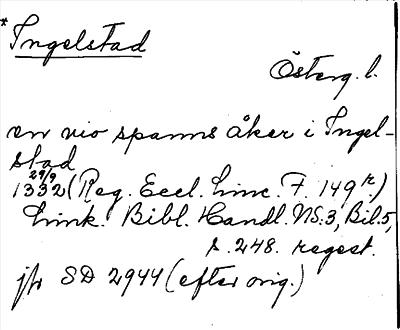 *Ingelstad
Österg. l.
en vio spanns åker i Ingel-
stad
29/9
1332 (Reg. Eccl. Linc. F. 149 r.)
Link. Bibl. Handl. NS. 3, Bil. 5,
s. 248. regest.
jfr SD 2944 (efter orig.)